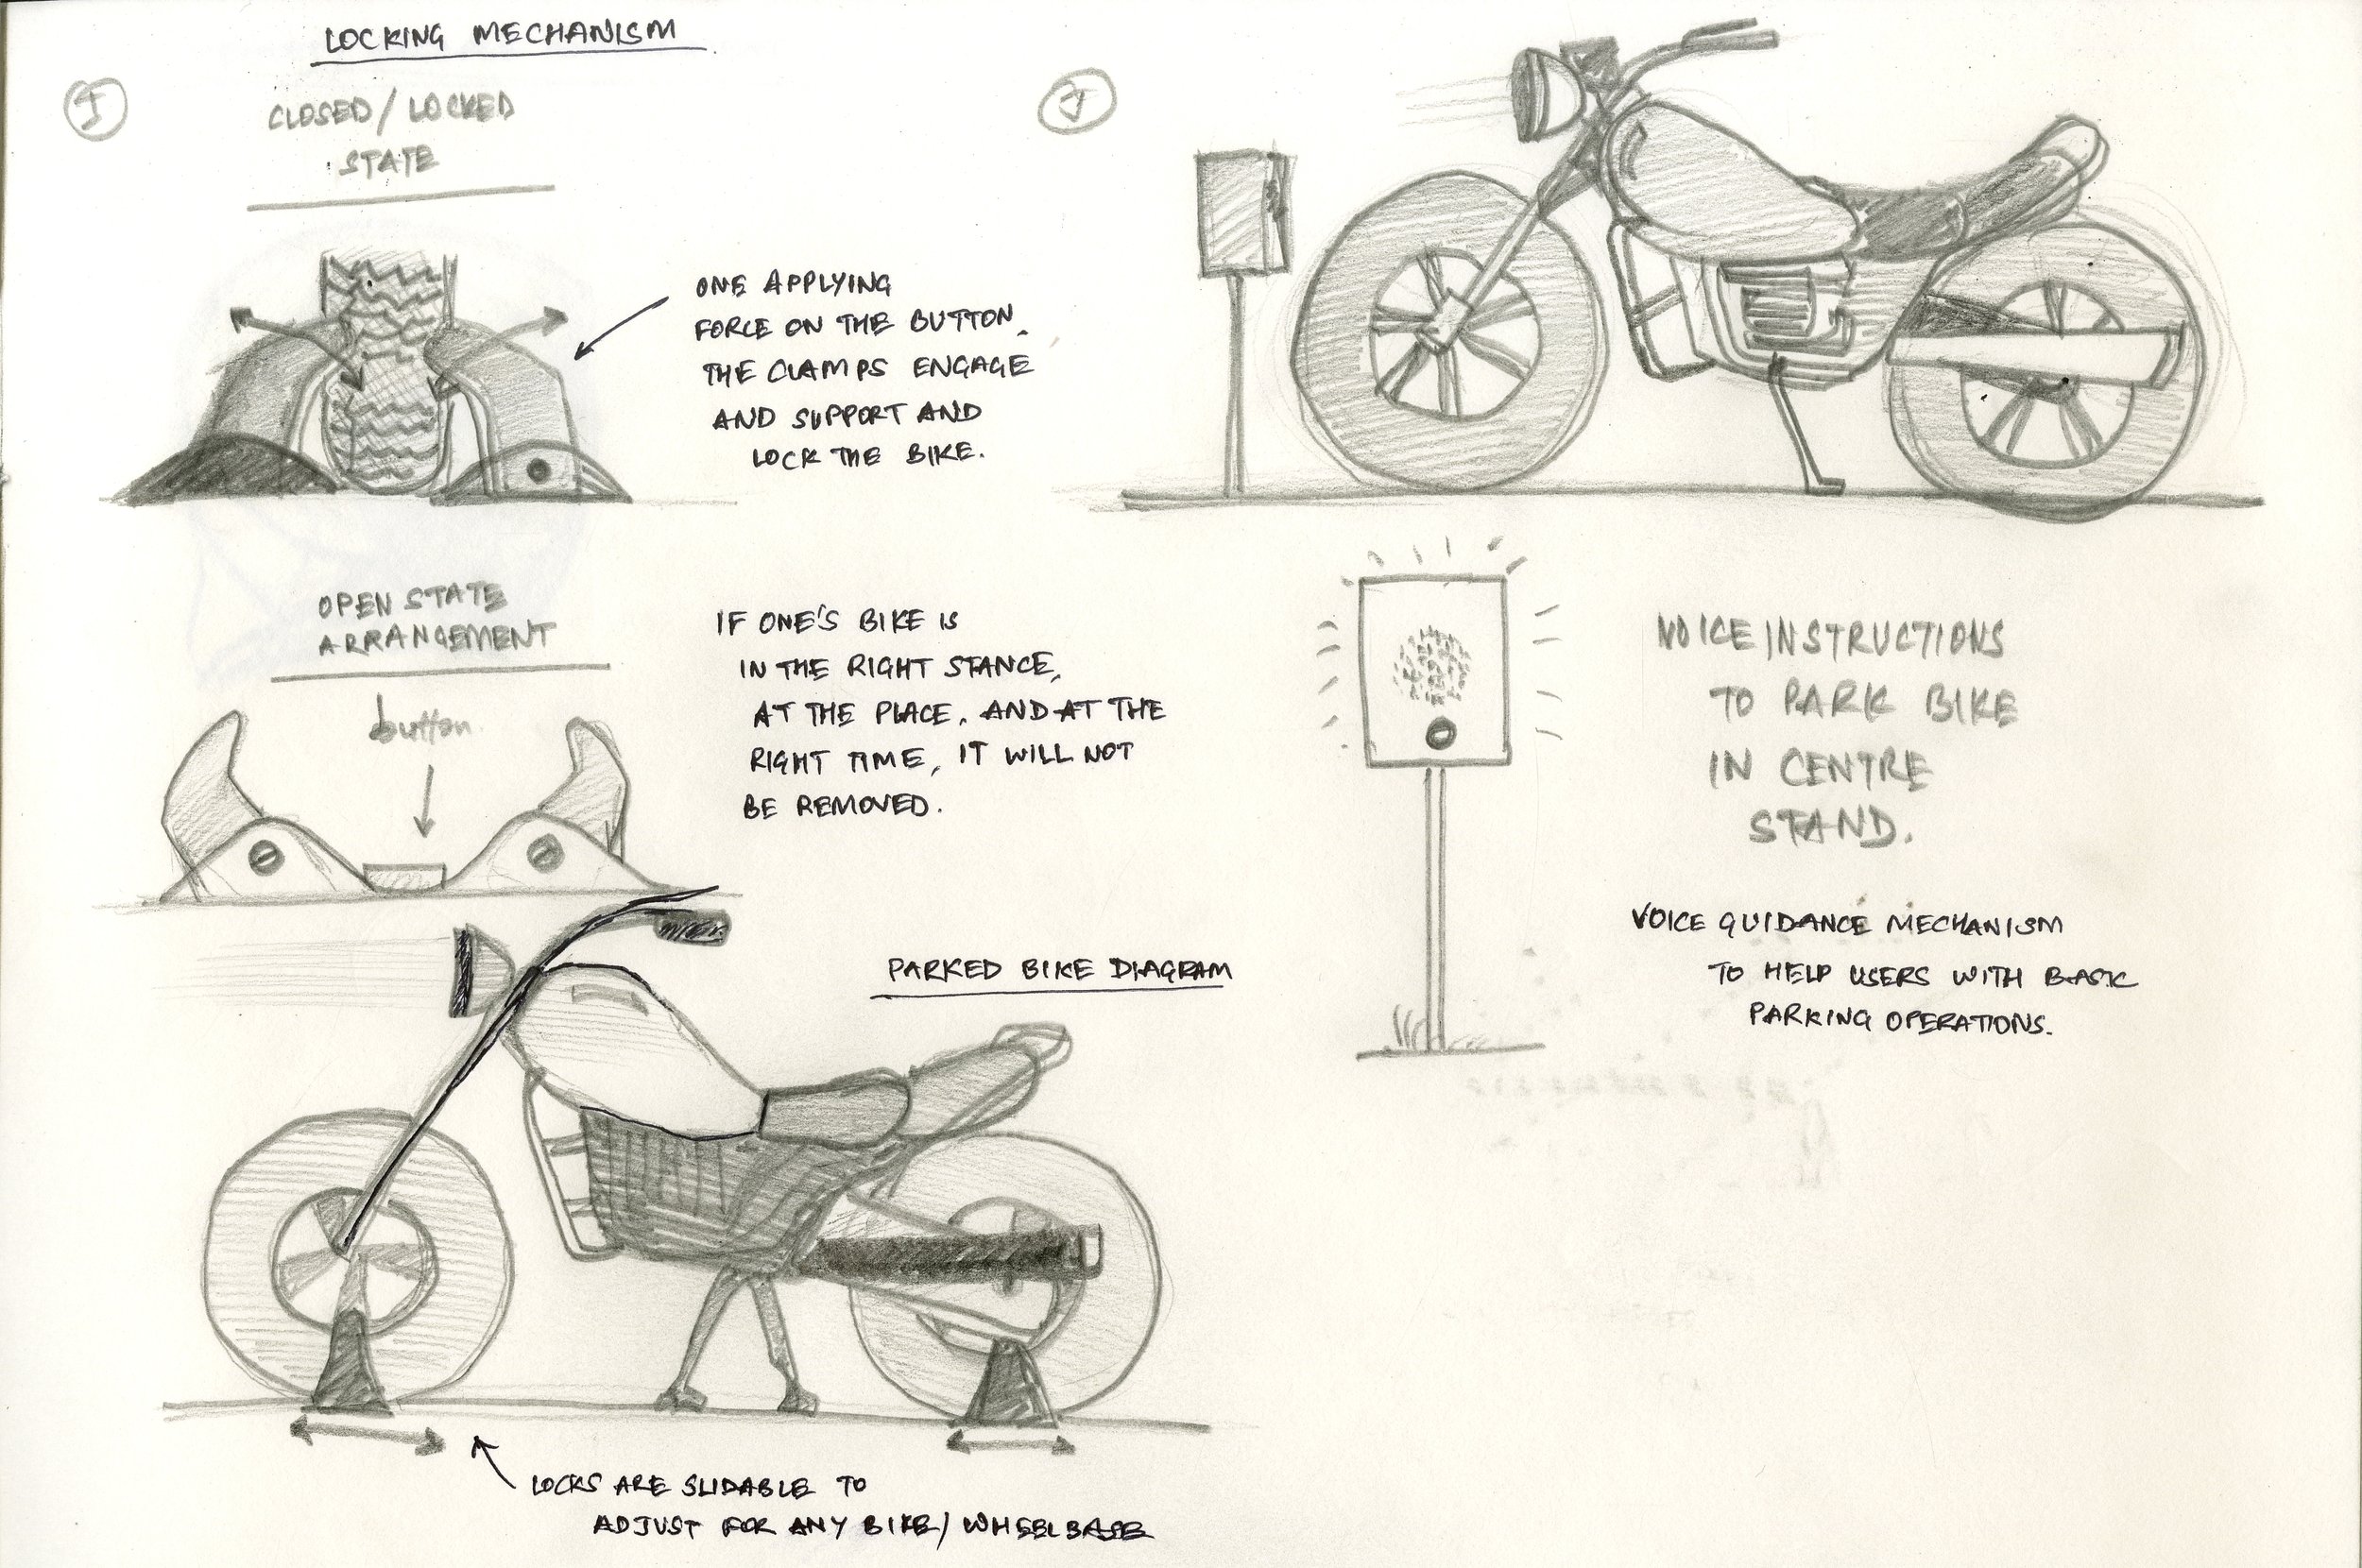 LOCKING MECHANISM
I
CLOSED / LOCKED
STATE
ONE APPLYING
FORCE ON THE BUTTON,
THE CLAMPS ENGAGE
AND SUPPORT AND
LOCK THE BIKE.
OPEN STATE
ARRANGEMENT
button
IF ONE'S BIKE IS
IN THE RIGHT STANCE,
AT THE PLACE, AND AT THE
RIGHT TIME, IT WILL NOT
BE REMOVED.
PARKED BIKE DIAGRAM
LOCKS ARE SLIDABLE TO
ADJUST FOR ANY BIKE/ WHEELBASE
J
VOICE INSTRUCTIONS
TO PARK BIKE
IN CENTRE
STAND.
VOICE GUIDANCE MECHANISM
TO HELP USERS WITH BASIC
PARKING OPERATIONS.